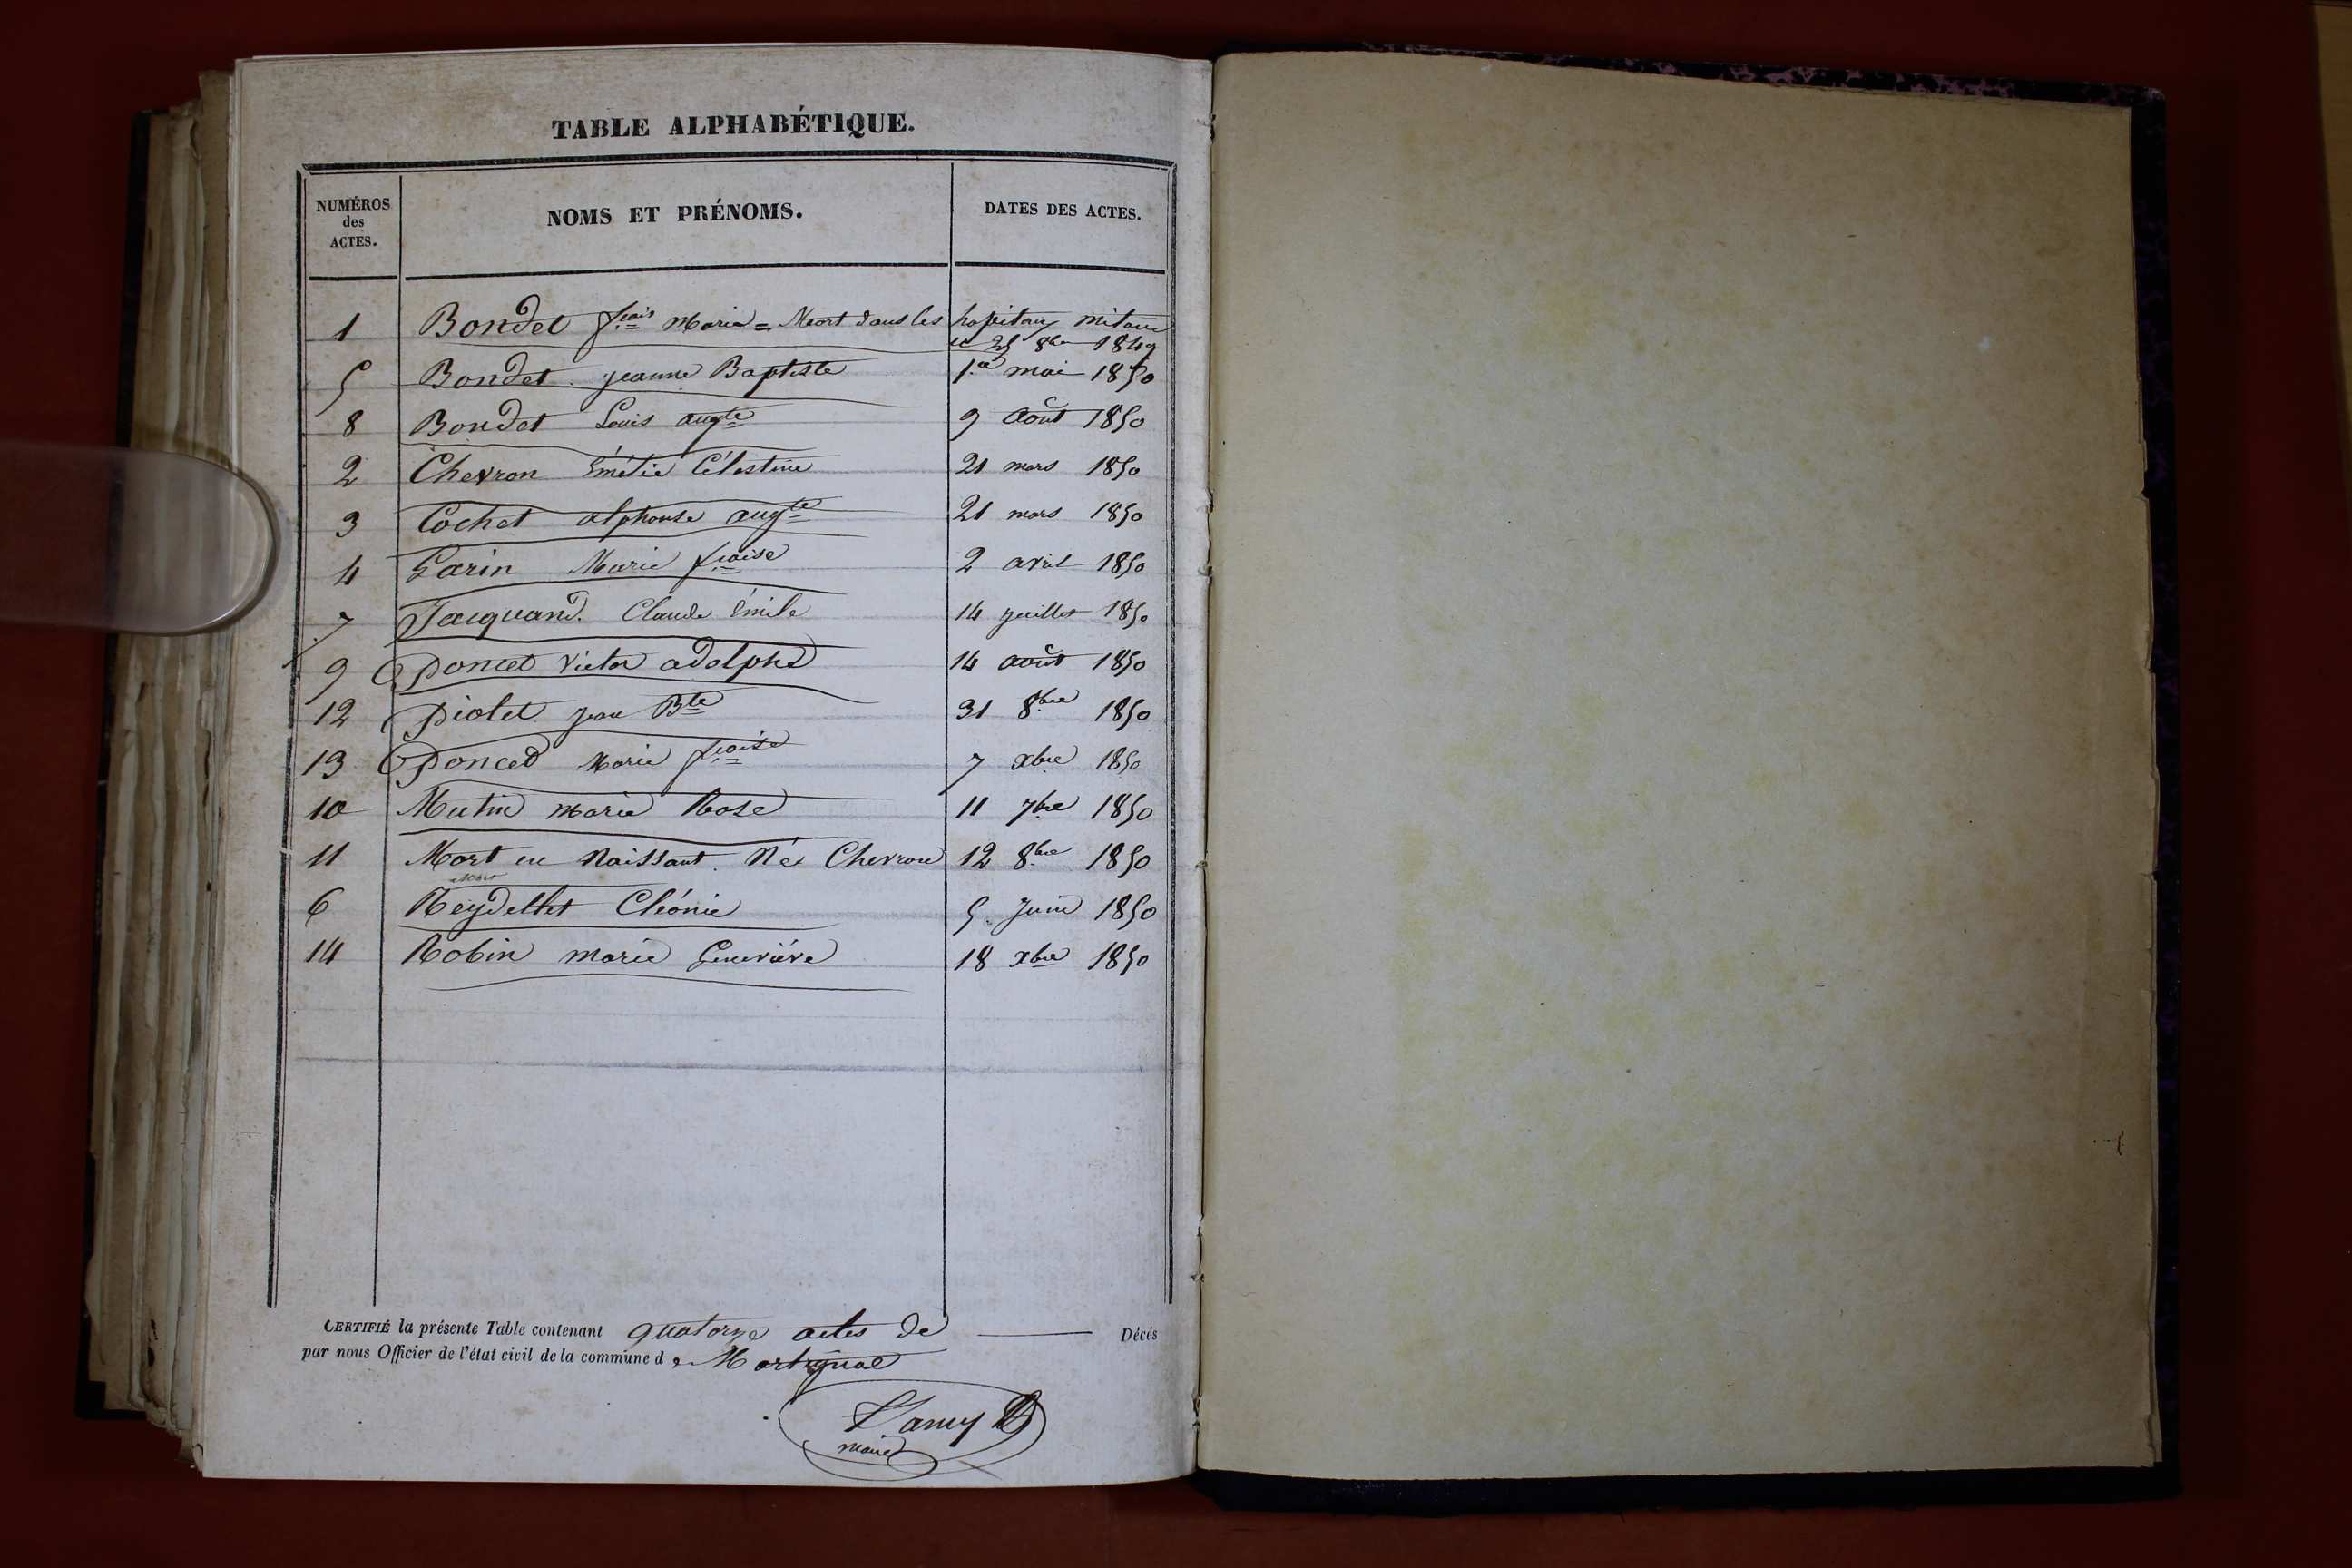 TABLE ALPHABÉTIQUE.
NUMÉROS des ACTES. NOMS ET PRÉNOMS. DATES DES ACTES.
1 Bondet fçois Marie = Mort dans les hopitaux mitaire
le 25 8bre 1849
5 Bondet Jeanne Baptiste 1.er mai 1850
8 Bondet Louis augte 9 Août 1850
2 Chevron Émélie Célestine 21 mars 1850
3 Cochet alphonse augte 21 mars 1850
4 Garin Marie fçoise 2 avril 1850
7 Jacquand. Claude Émile 14 juillet 1850
9 Poncet Victor adolphe 14 août 1850
12 Piolet jean Bte 31 8bre 1850
13 Poncet Marie fçoise 7 xbre 1850
10 Mutin Marie Rose 11 7bre 1850
11 Mort en Naissant. Né Chevron 12 8bre 1850
6 Reydellet Cléonie 5 Juin 1850
14 Robin marie Geneviève 18 xbre 1850
CERTIFIÉ la présente Table contenant quatorze actes de Décès
par nous Officier de l'état civil de la commune de Martignat
maire